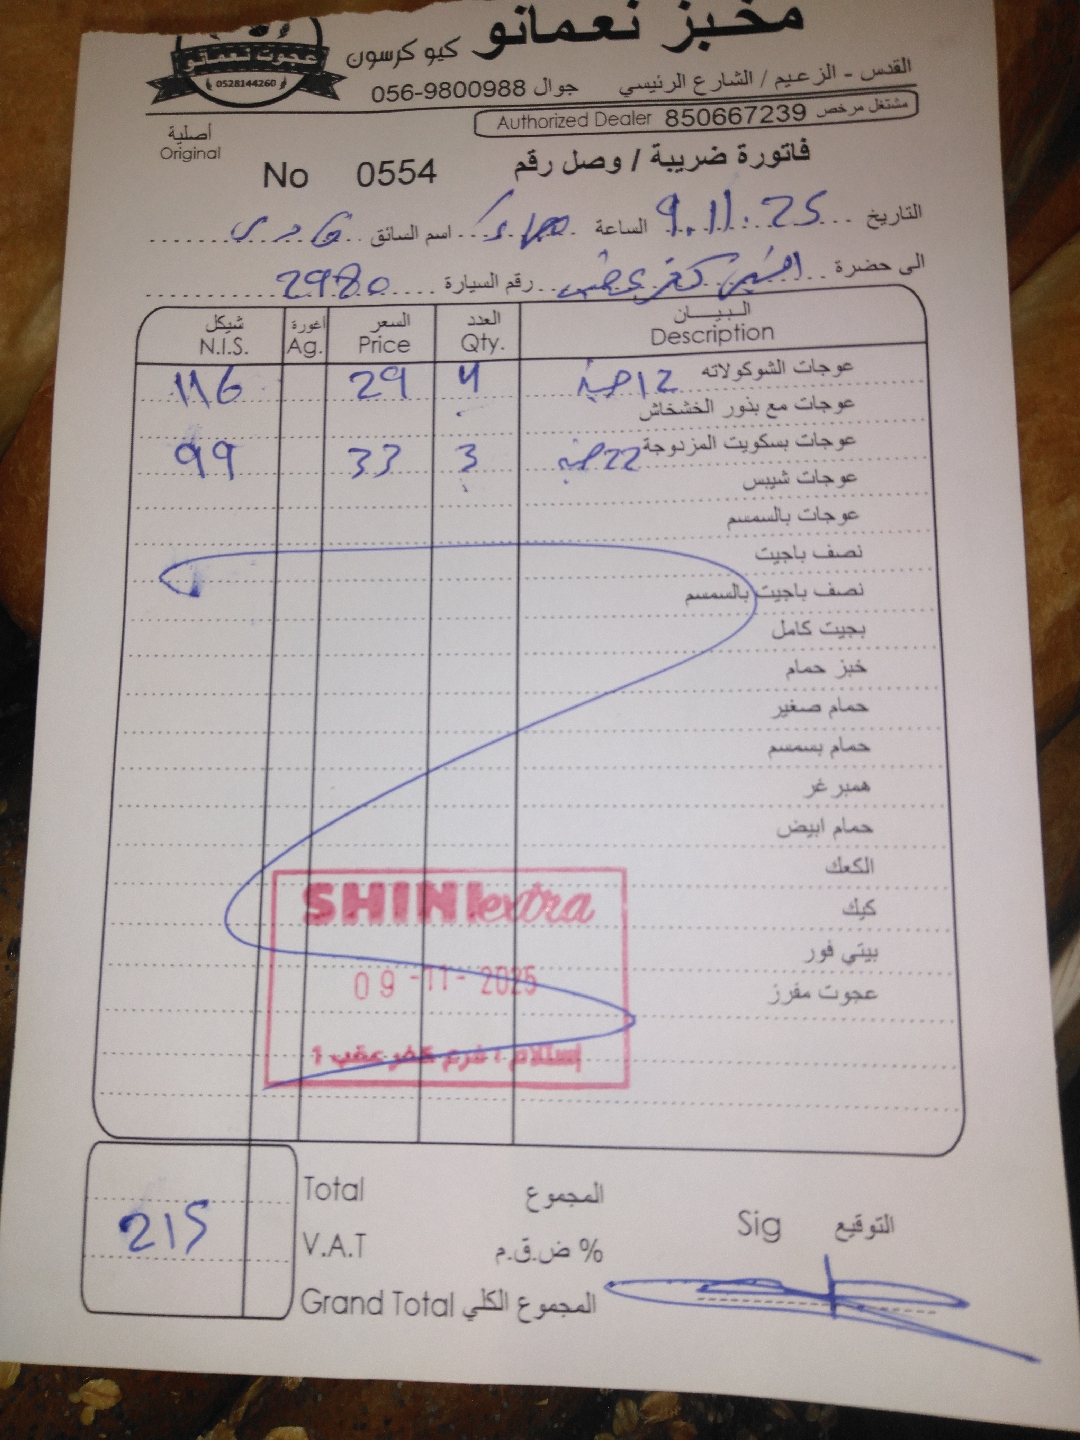 مخبز نعمانو كيو كرسون
عجوت نعمانو
0528144260
القدس - الزعيم / الشارع الرئيسي جوال 056-9800988
مشتغل مرخص 850667239 Authorized Dealer
أصلية
Original
فاتورة ضريبة / وصل رقم No 0554
التاريخ 9.11.25 الساعة اسم السائق
الى حضرة رقم السيارة 2980
البيان العدد السعر اغورة شيكل
Description Qty. Price Ag. N.I.S.
عوجات الشوكولاته 12 حبة 4 29 116
عوجات مع بذور الخشخاش
عوجات بسكويت المزدوجة 22 حبة 3 33 99
عوجات شيبس
عوجات بالسمسم
نصف باجيت
نصف باجيت بالسمسم
بجيت كامل
خبز حمام
حمام صغير
حمام بسمسم
همبر غر
حمام ابيض
الكعك
كيك
بيتي فور
عجوت مفرز
SHINI extra
09-11-2025
إستلام : فرع كفر عقب 1
المجموع Total
% ض.ق.م V.A.T 215
المجموع الكلي Grand Total
التوقيع Sig